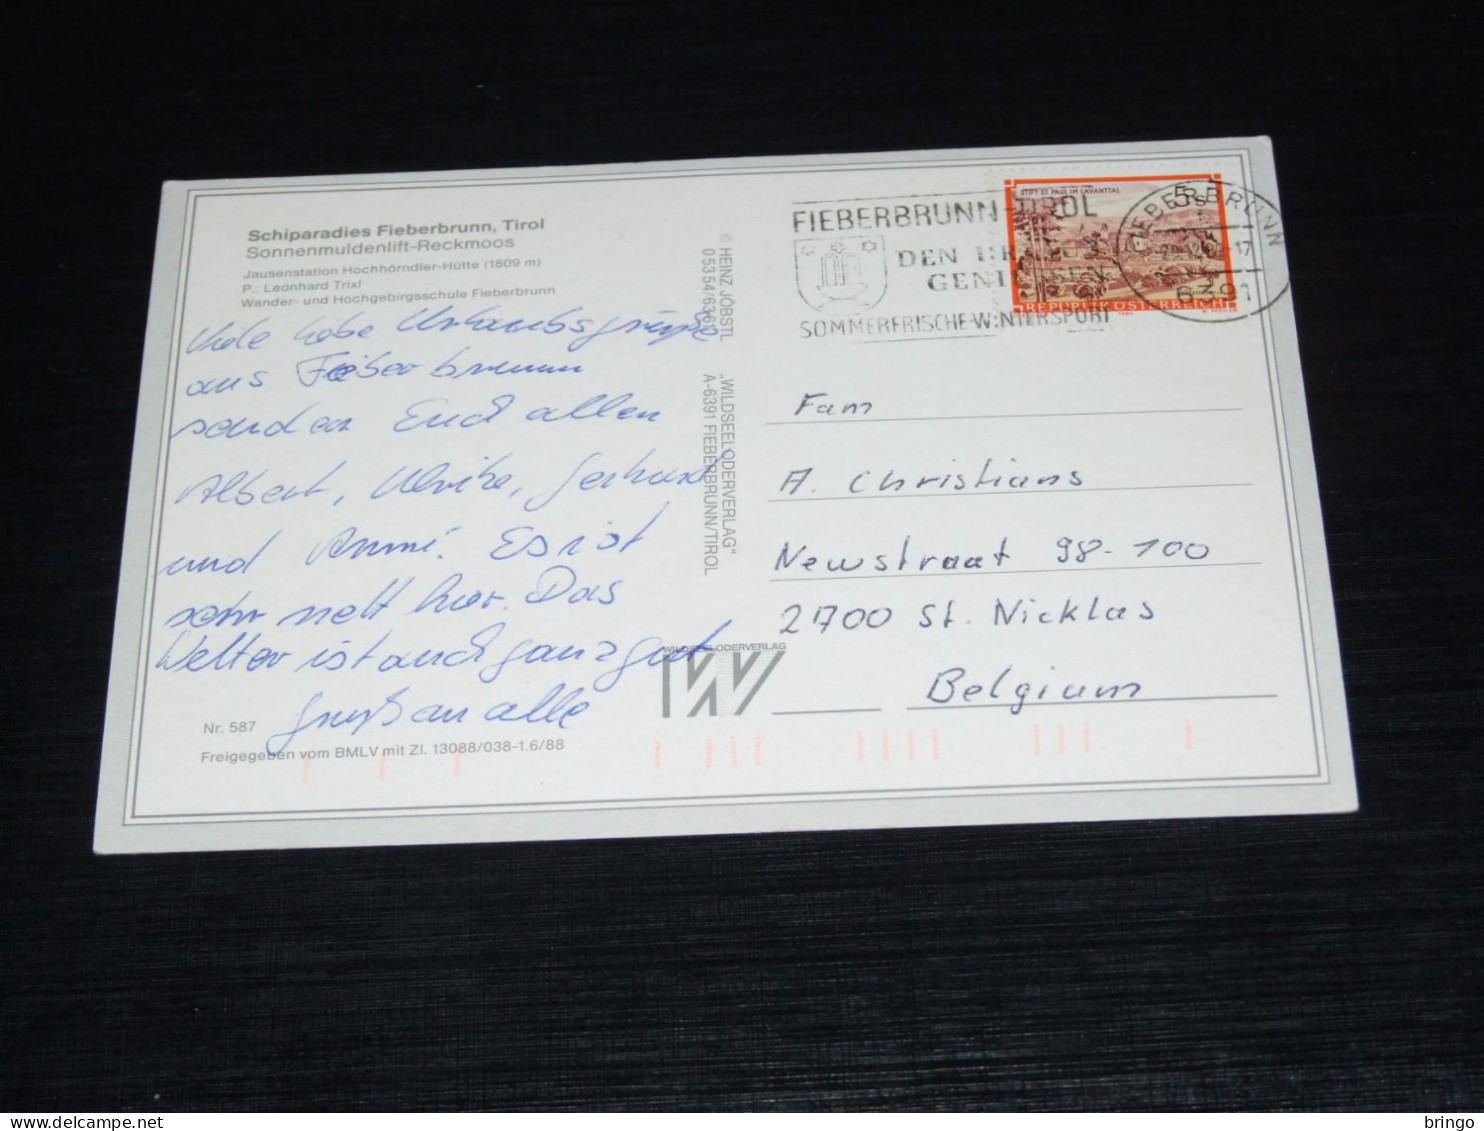 Schiparadies Fieberbrunn, Tirol
Sonnenmuldenlift-Reckmoos
Jausenstation Hochhörndler-Hütte (1809 m)
P.: Leonhard Trixl
Wander- und Hochgebirgsschule Fieberbrunn
Viele liebe Urlaubsgrüße
aus Fieberbrunn
senden Euch allen
Albert, Ulrike, Gerhard
und Anni. Es ist
sehr nett hier. Das
Wetter ist auch ganz gut
Gruß an alle
Nr. 587
Freigegeben vom BMLV mit Zl. 13088/038-1.6/88
© HEINZ JÖBSTL
„WILDSEELODERVERLAG“
A-6391 FIEBERBRUNN/TIROL
WILDSEELODERVERLAG
W
FIEBERBRUNN-TIROL
DEN
SOMMERFRISCHE-WINTERSPORT
STIFT ST. PAUL IM LAVANTTAL
5s
REPUBLIK ÖSTERREICH
FIEBERBRUNN
6391
Fam
A. Christians
Newstraat 98-100
2700 St. Nicklas
Belgium
bringo